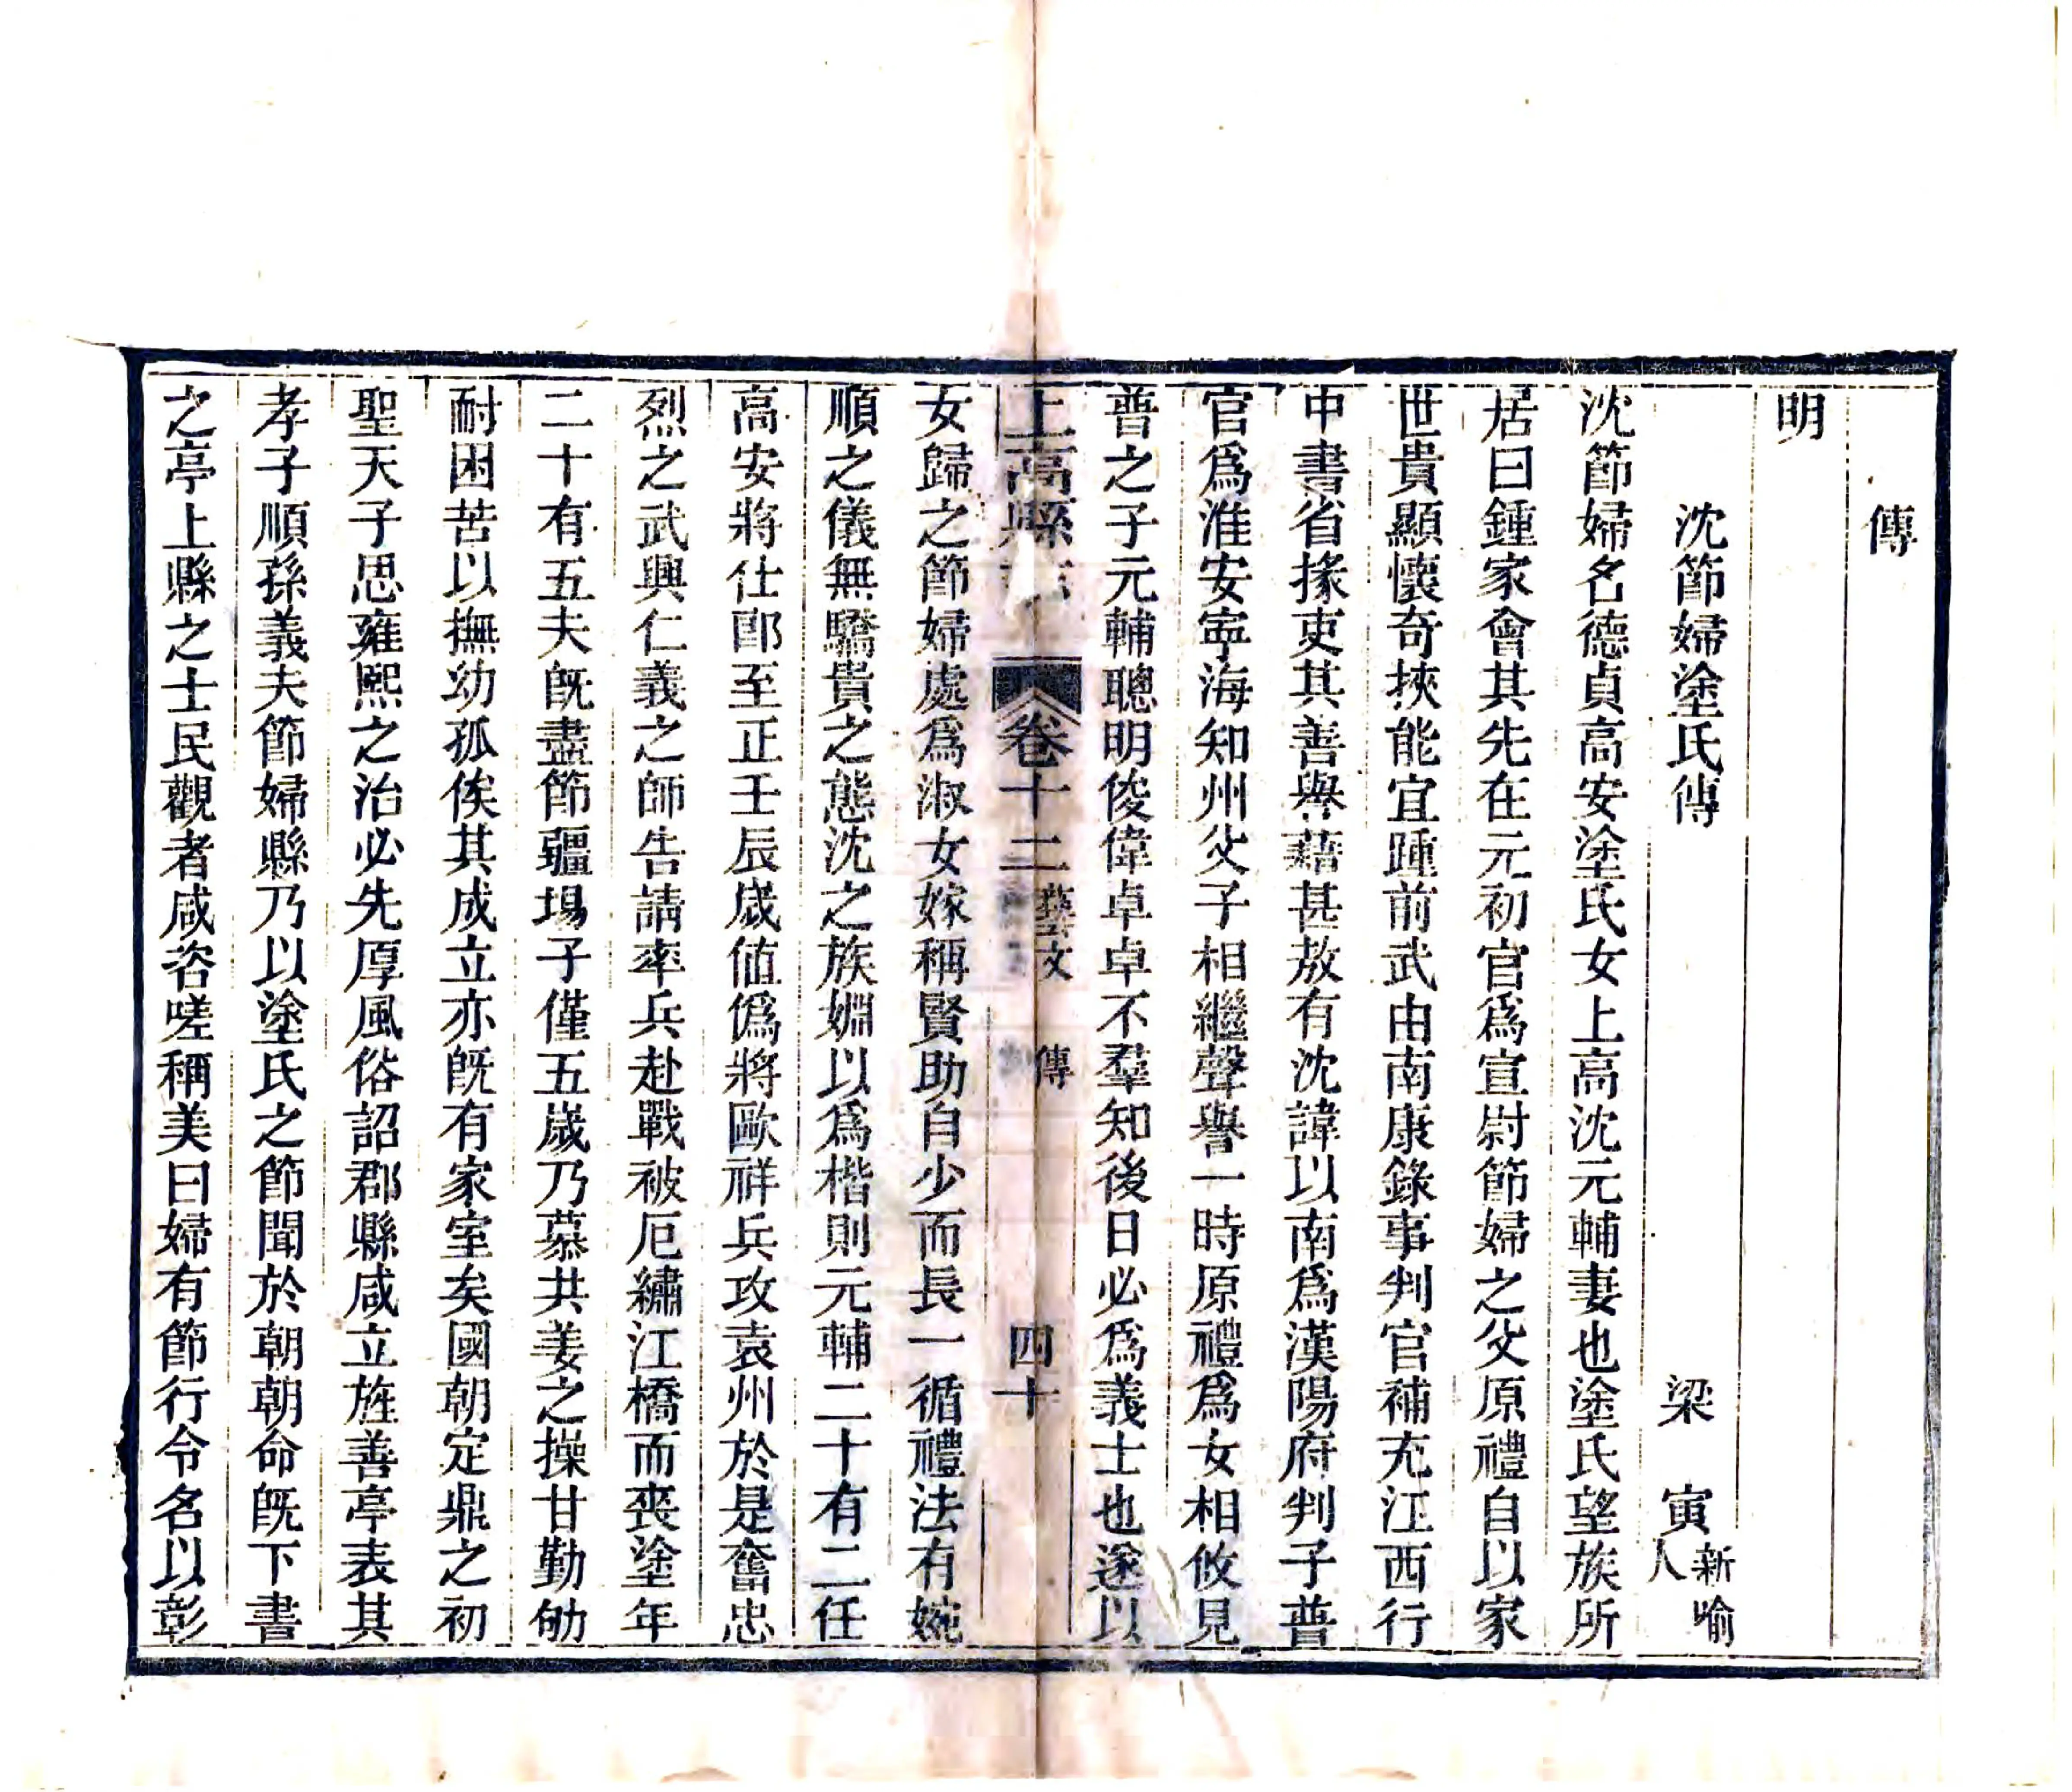 傳
明
沈節婦塗氏傳 梁 寅 新喻人
沈節婦名德貞高安塗氏女上高沈元輔妻也塗氏望族所
居曰鍾家會其先在元初官爲宣尉節婦之父原禮自以家
世貴顯懷奇挾能宜踵前武由南康錄事判官補充江西行
中書省掾吏其善譽藉甚敖有沈諱以南爲漢陽府判子普
官爲淮安寍海知州父子相繼聲譽一時原禮爲女相攸見
普之子元輔聰明俊偉卓卓不羣知後日必爲義士也遂以
上高縣 卷十二 藝文 傳 四十
女歸之節婦處爲淑女嫁稱賢助自少而長一循禮法有婉
順之儀無驕貴之態沈之族婣以爲楷則元輔二十有二任
高安將仕郎至正壬辰歲値僞將歐祥兵攻袁州於是奮忠
烈之武興仁義之師告請率兵赴戰被厄繡江橋而喪塗年
二十有五夫旣盡節疆場子僅五歲乃慕共姜之操甘勤劬
耐困苦以撫幼孤俟其成立亦旣有家室矣國朝定鼎之初
聖天子思雍熙之治必先厚風俗詔郡縣咸立旌善亭表其
孝子順孫義夫節婦縣乃以塗氏之節聞於朝朝命旣下書
之亭上縣之士民觀者咸咨嗟稱美曰婦有節行令名以彰